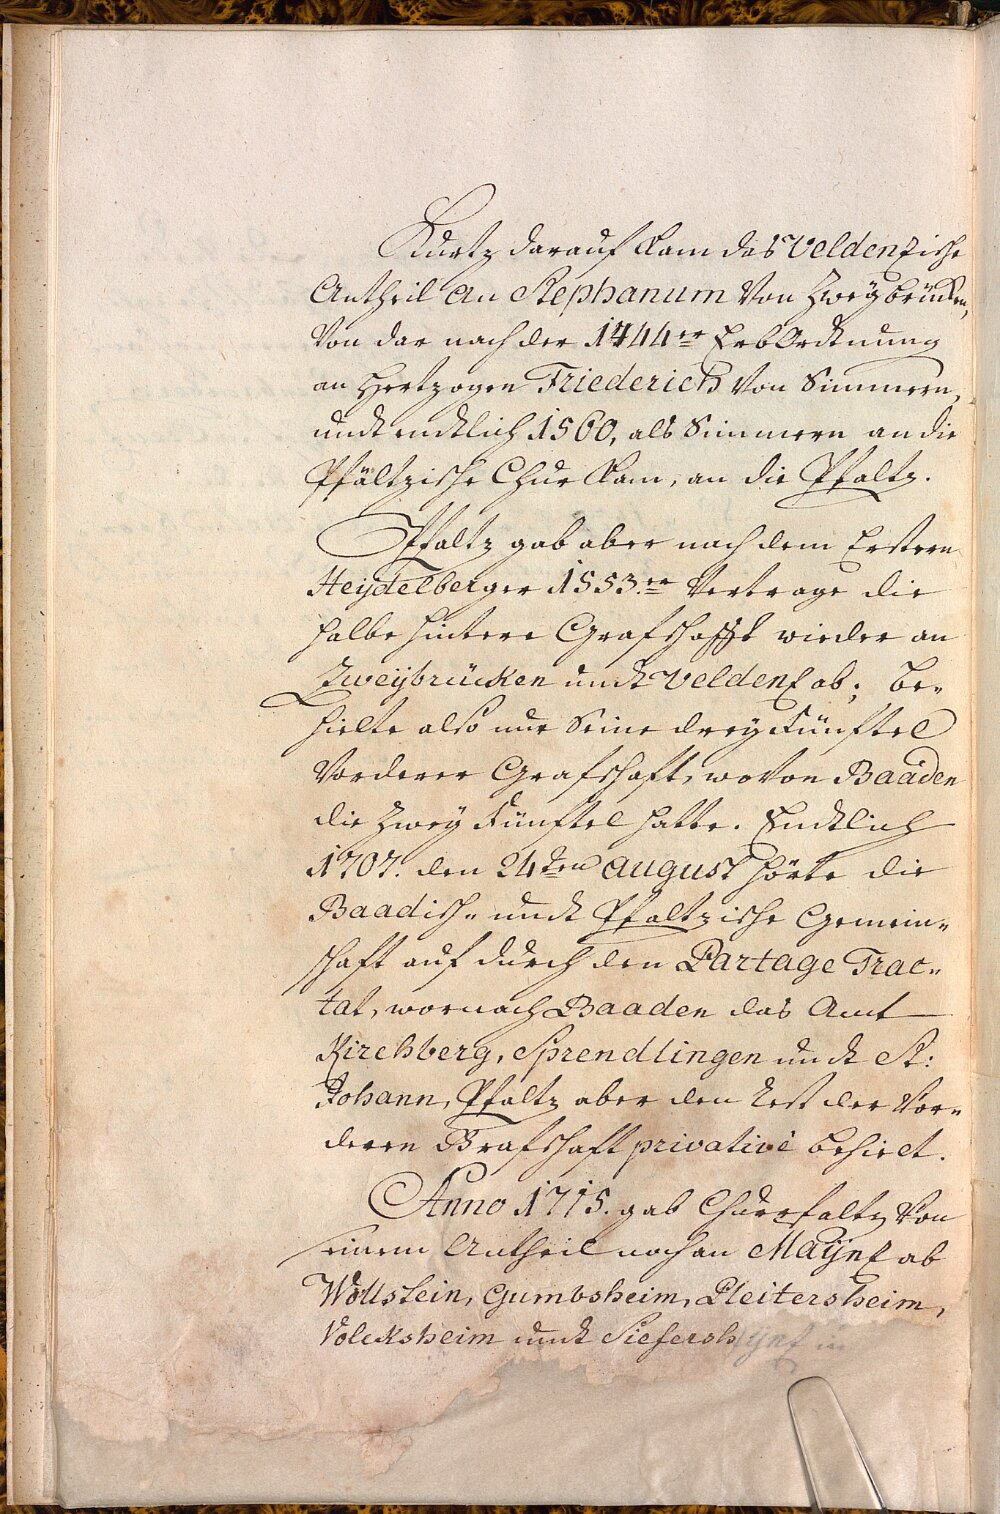 Kurtz darauf kam das Veldenzische
Antheil an Stephanum von Zweybrücken,
von dar nach der 1444er ErbOrdtnung
an Hertzogen Friederich von Simmern,
undt endtlich 1560, als Simmern an die
Pfältzische Chur kam, an die Pfaltz.
Pfaltz gab aber nach dem Erstern
Heydelberger 1553.er Vertrage die
halbe hintere Grafschafft wieder an
Zweybrücken undt Veldenz ab; be-
hielte also nur seine drey Fünftel
Vorderer Grafschaft, wovon Baaden
die Zwey Fünftel hatte. Endtlich
1707. den 24ten august hörte die
Baadisch- undt Pfaltzische Gemein-
schaft auf durch den Partage Trac-
tat, wornach Baaden das Amt
Kirchberg, Sprendlingen undt St:
Johann, Pfaltz aber den Rest der Vor-
dern Grafschaft privativè behielt.
Anno 1715. gab Churpfaltz von
seinem Antheil noch an Maynz ab
Wöllstein, Gumbsheim, Pleitersheim,
Volcksheim undt Siefersh